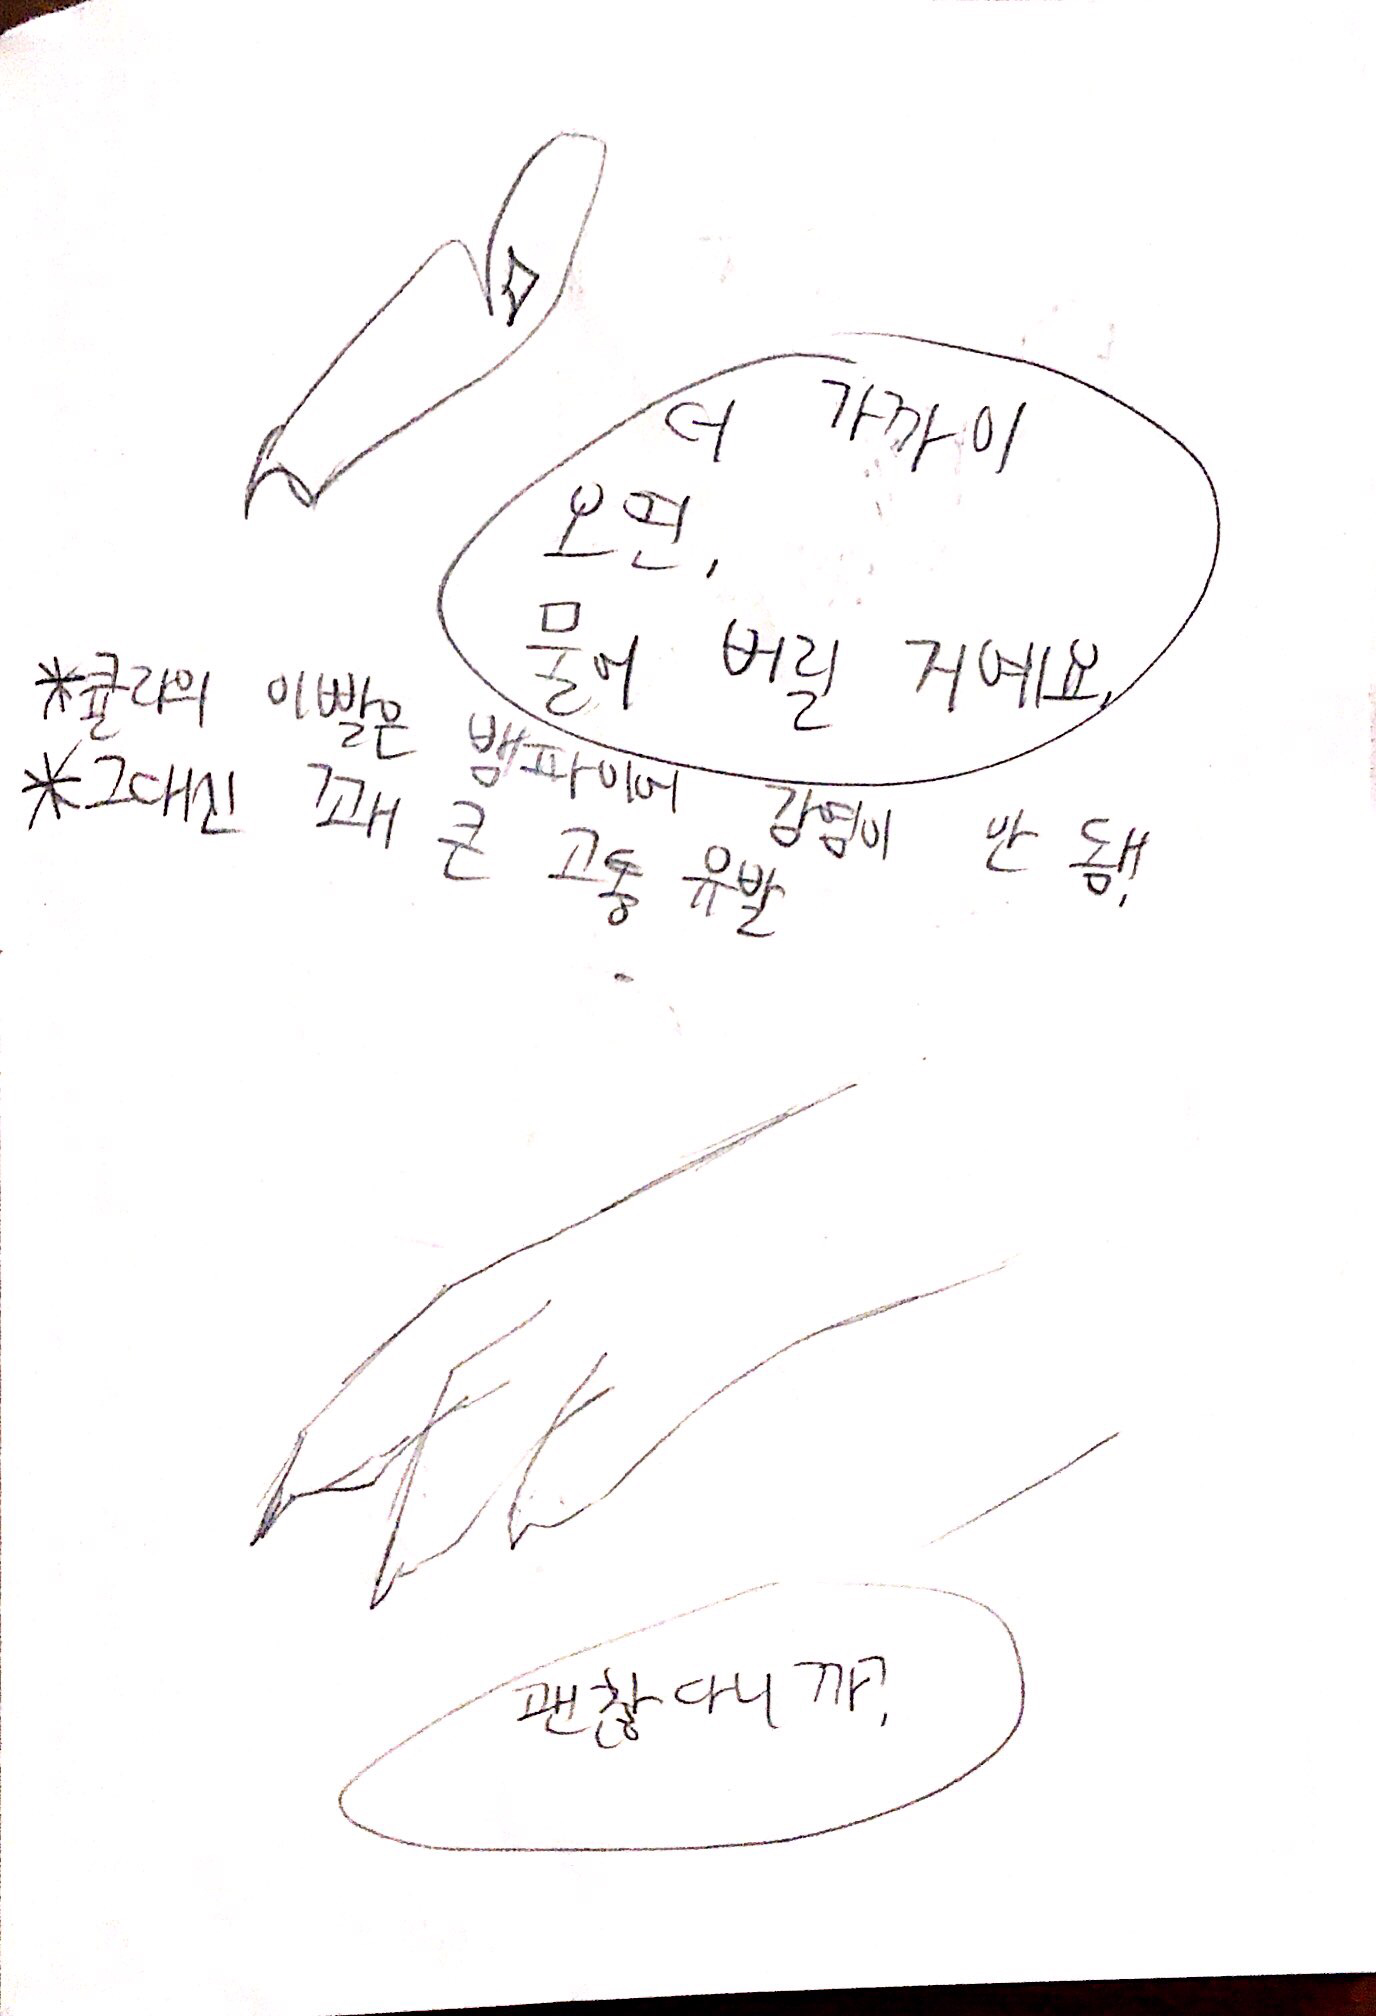 더 가까이
오면,
물어 버릴 거예요,
*큘라의 이빨은 뱀파이어 감염이 안 됌!
*그대신 꽤 큰 고통 유발
괜찮다니까?